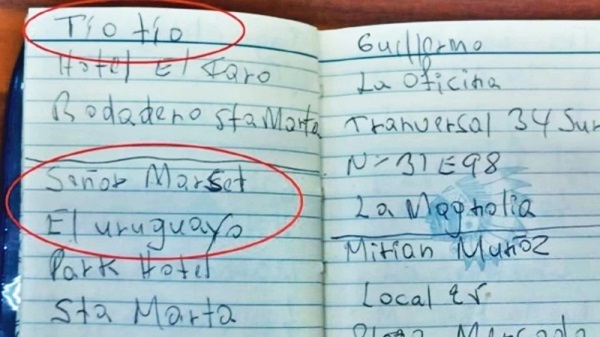 Tio tio
Hotel El Faro
Rodadero Sta Marta
Señor Marset
El uruguayo
Park Hotel
Sta Marta
Guillermo
La Oficina
Tranversal 34 Sur
N= 31 E 98
La Magnolia
Mirian Muñoz
Local